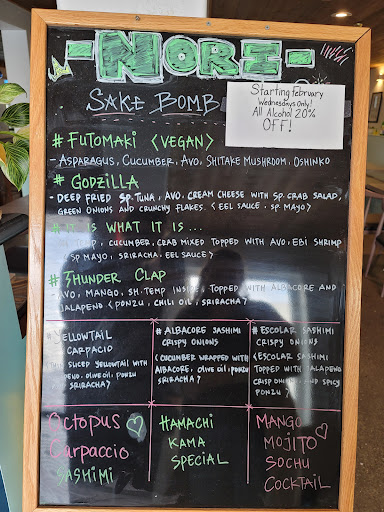 -NORI-
SAKE BOMB
Starting February
Wednesdays Only!
All Alcohol 20%
OFF!
# FUTOMAKI <VEGAN>
- ASPARAGUS, CUCUMBER, AVO, SHITAKE MUSHROOM, OSHINKO
# GODZILLA
- DEEP FRIED SP. TUNA, AVO, CREAM CHEESE WITH SP. CRAB SALAD,
GREEN ONIONS AND CRUNCHY FLAKES. <EEL SAUCE, SP MAYO>
# IT IS WHAT IT IS...
, CUCUMBER, CRAB MIXED TOPPED WITH AVO, EBI SHRIMP
SP MAYO, SRIRACHA, EEL SAUCE>
# THUNDER CLAP
- AVO, MANGO, SH. TEMP INSIDE, TOPPED WITH ALBACORE AND
JALAPENO <PONZU, CHILI OIL, SRIRACHA>
# YELLOWTAIL
CARPACIO
SLICED YELLOWTAIL WITH
OLIVE OIL, PONZU
SRIRACHA>
# ALBACORE SASHIMI
CRISPY ONIONS
<CUCUMBER WRAPPED WITH
ALBACORE, OLIVE OIL, PONZU
SRIRACHA>
# ESCOLAR SASHIMI
CRISPY ONIONS
<ESCOLAR SASHIMI
TOPPED WITH JALAPENO
CRISP ONION, AND SPICY
PONZU>
Octopus
Carpaccio
SASHIMI
HAMACHI
KAMA
SPECIAL
MANGO
MOJITO
SOCHU
COCKTAIL